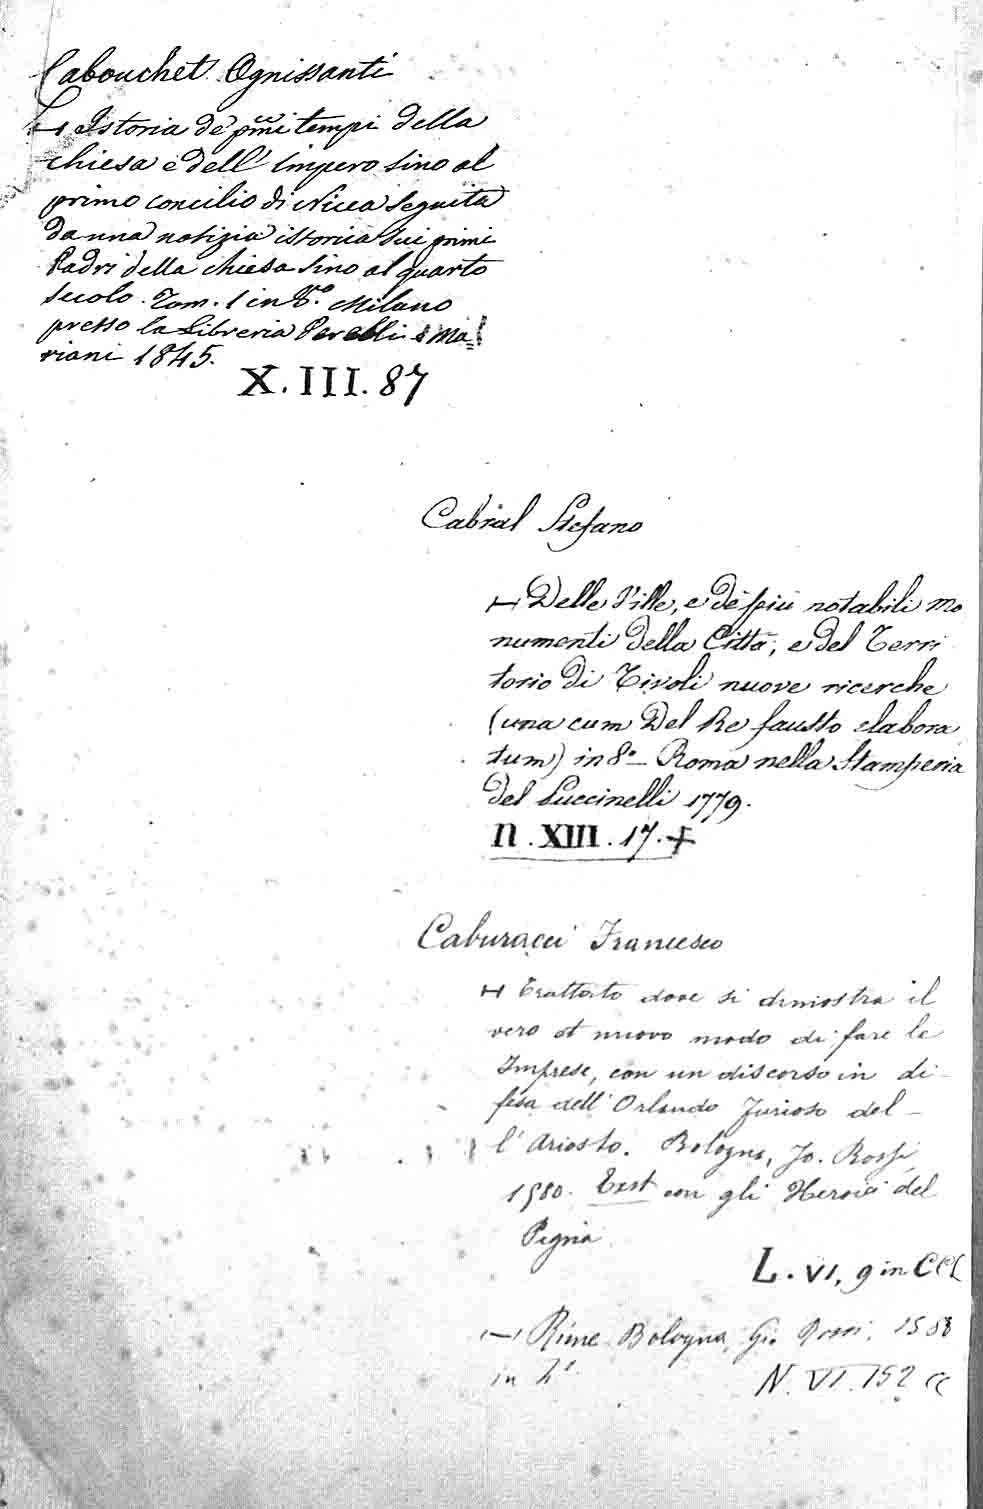 Cabouchet Ognissanti
⊢ Istoria de' pmi tempi della
chiesa e dell' impero sino al
primo concilio di Nicea seguita
da una notizia istorica sui primi
Padri della chiesa sino al quarto
secolo. Tom. 1 in 8.o Milano
presso la Libreria Perelli e Ma=
riani 1845.
X. III. 87
Cabral Stefano
⊢ Delle Ville, e de' più notabili mo
numenti della Città, e del Terri
torio di Tivoli nuove ricerche
(una cum Del Re fausto elabora
tum) in 8.o Roma nella Stamperia
del Puccinelli 1779.
N. XIII. 17. +
Caburacci Francesco
⊢ Trattato dove si dimostra il
vero et nuovo modo di fare le
Imprese, con un discorso in di-
fesa dell' Orlando Furioso del-
l' Ariosto. Bologna, Jo. Rossi,
1580. Exst con gli Heroici del
Pigna
L. VI, 9 in CCC
⊢ Rime Bologna, Gi. Rossi, 1580
in 4.o
N. VI. 152 cc